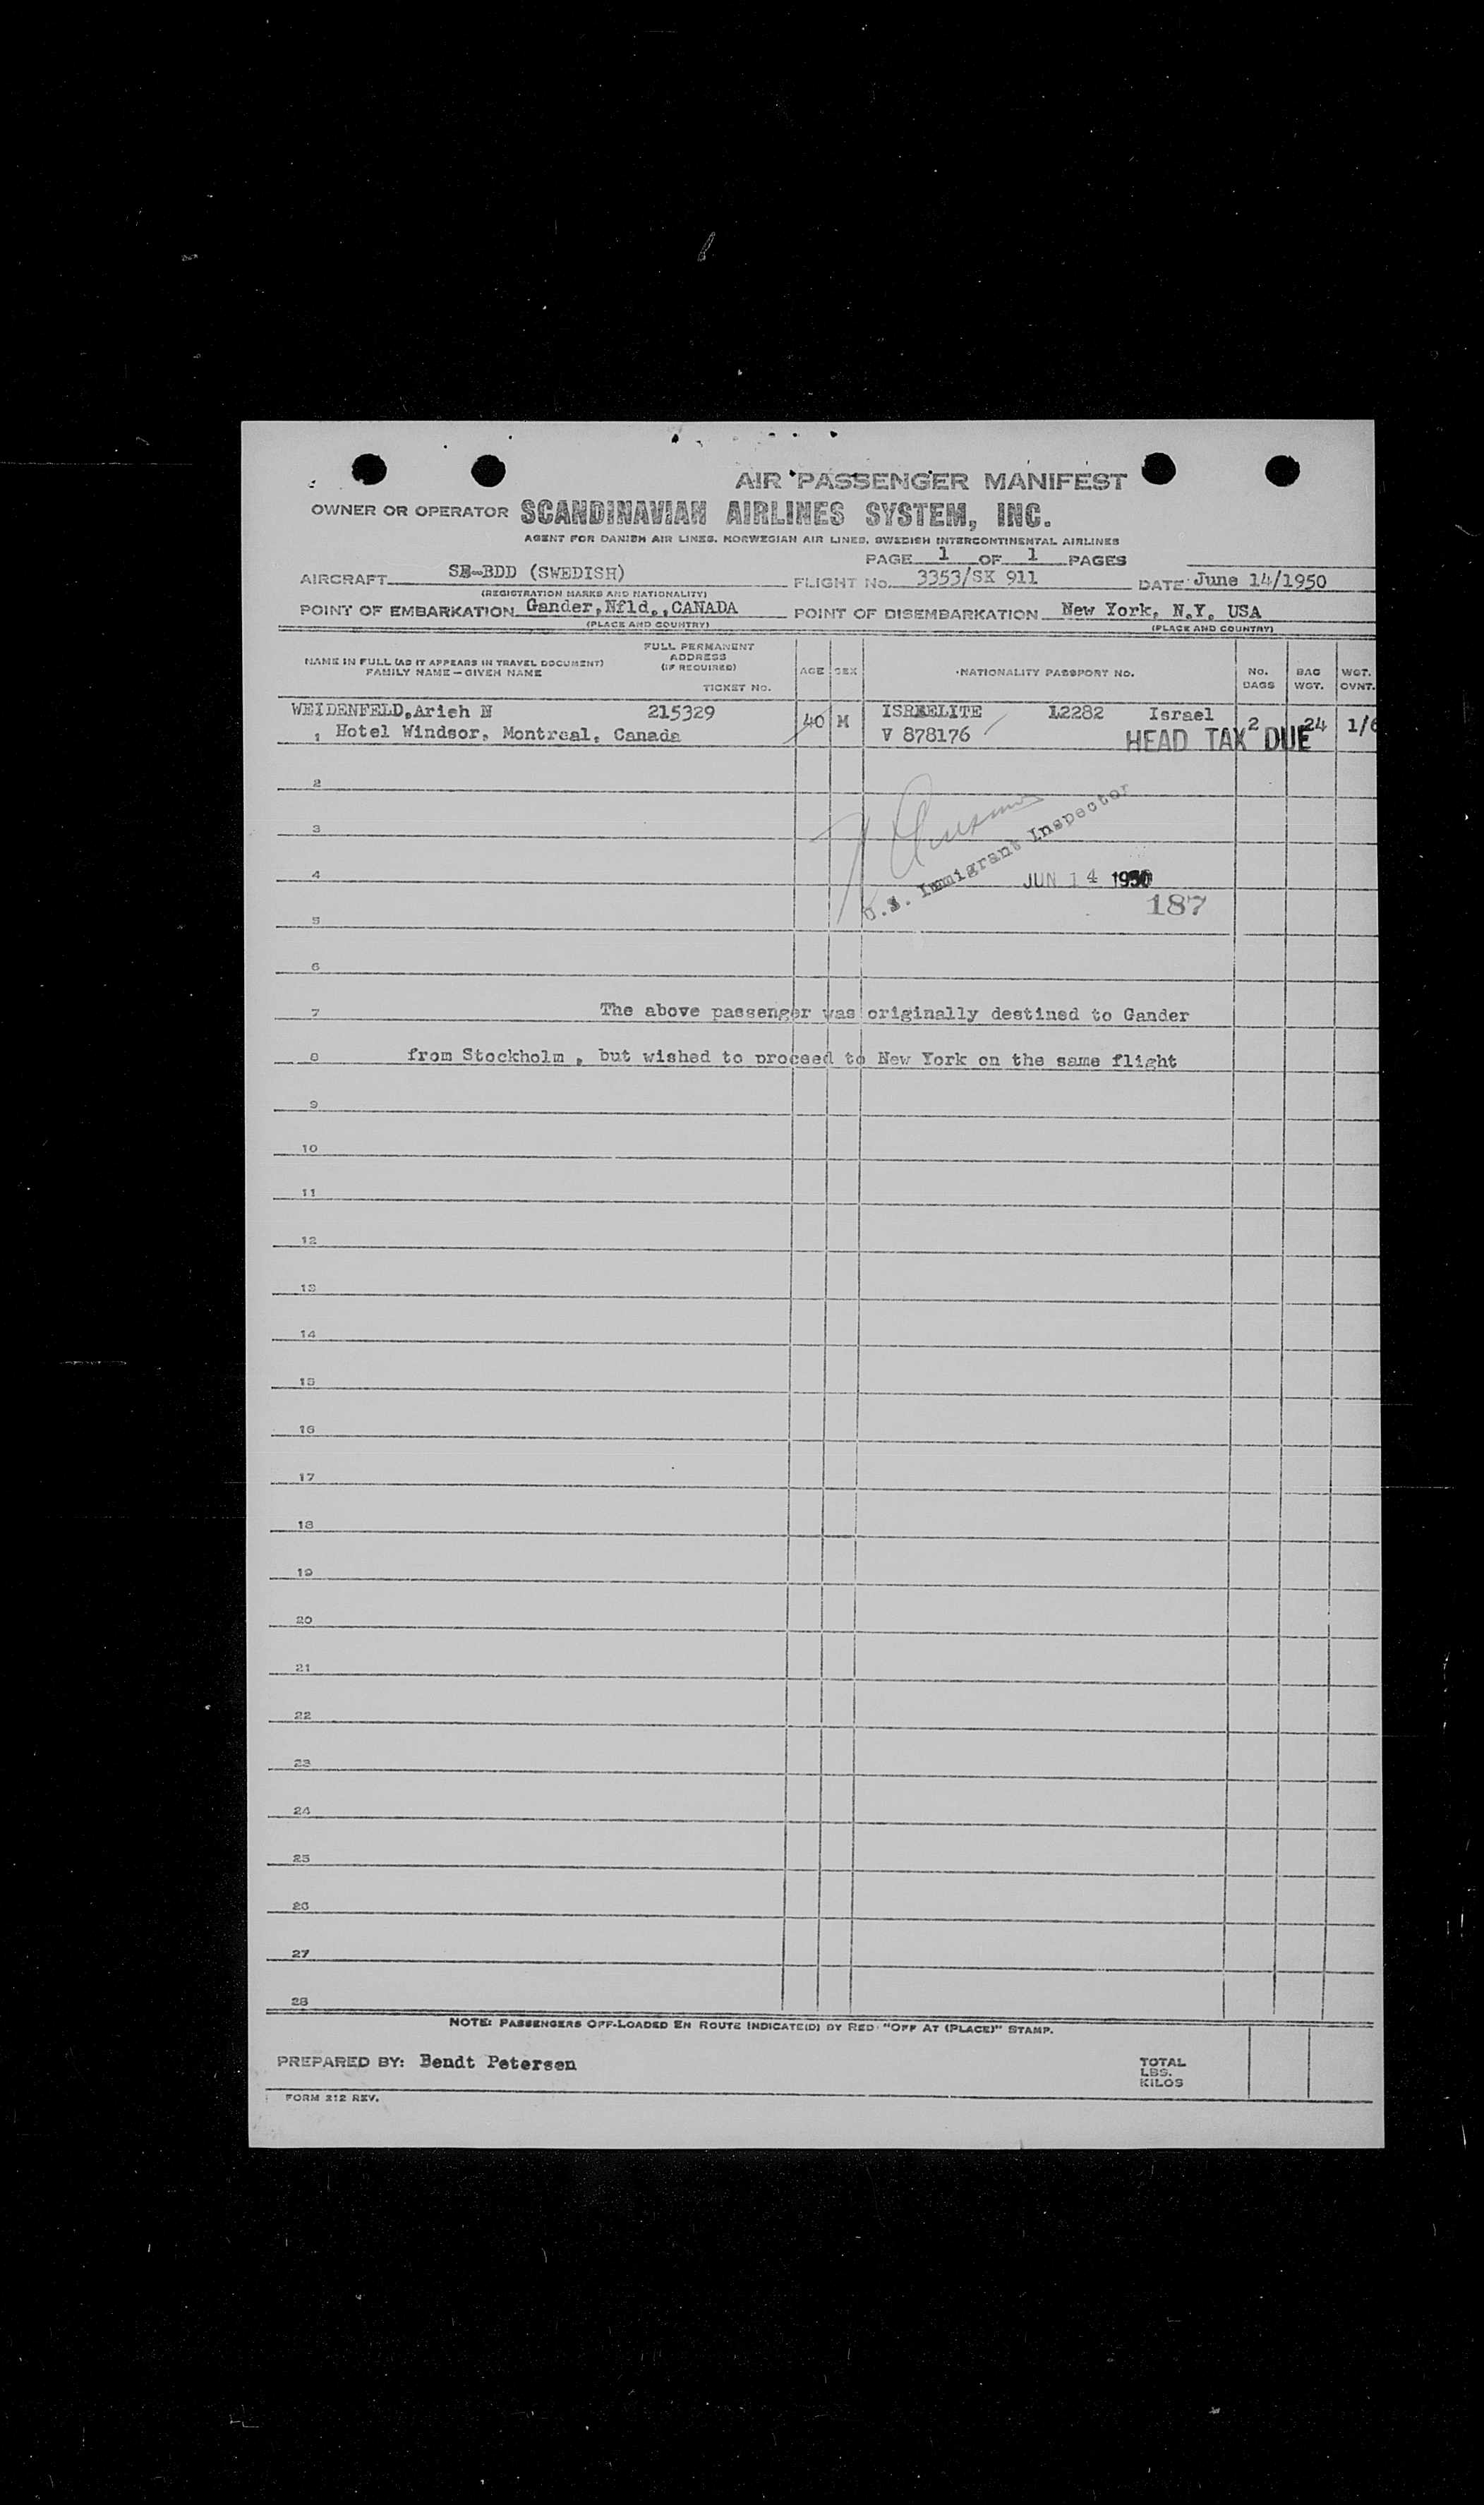 AIR PASSENGER MANIFEST
OWNER OR OPERATOR SCANDINAVIAN AIRLINES SYSTEM, INC.
AGENT FOR DANISH AIR LINES, NORWEGIAN AIR LINES, SWEDISH INTERCONTINENTAL AIRLINES
PAGE 1 OF 1 PAGES
AIRCRAFT SE-BDD (SWEDISH) FLIGHT No. 3353/SK 911 DATE June 14/1950
(REGISTRATION MARKS AND NATIONALITY)
POINT OF EMBARKATION Gander, Nfld., CANADA POINT OF DISEMBARKATION New York, N.Y. USA
(PLACE AND COUNTRY) (PLACE AND COUNTRY)
NAME IN FULL (AS IT APPEARS IN TRAVEL DOCUMENT)
FAMILY NAME — GIVEN NAME
FULL PERMANENT
ADDRESS
(IF REQUIRED)
TICKET No.
AGE SEX NATIONALITY PASSPORT No. No. BAGS BAG WGT. WGT. OVNT.
WEIDENFELD, Arieh N 215329 40 M ISRAELITE 12282 Israel 2 24 1/6
, Hotel Windsor, Montreal, Canada V 878176 HEAD TAX DUE
2
3
U.S. Immigrant Inspector
4 JUN 14 1950
187
5
6
7 The above passenger was originally destined to Gander
8 from Stockholm , but wished to proceed to New York on the same flight
9
10
11
12
13
14
15
16
17
18
19
20
21
22
23
24
25
26
27
28
NOTE: PASSENGERS OFF-LOADED EN ROUTE INDICATE(D) BY RED "OFF AT (PLACE)" STAMP.
PREPARED BY: Bendt Petersen
TOTAL
LBS.
KILOS
FORM 212 REV.